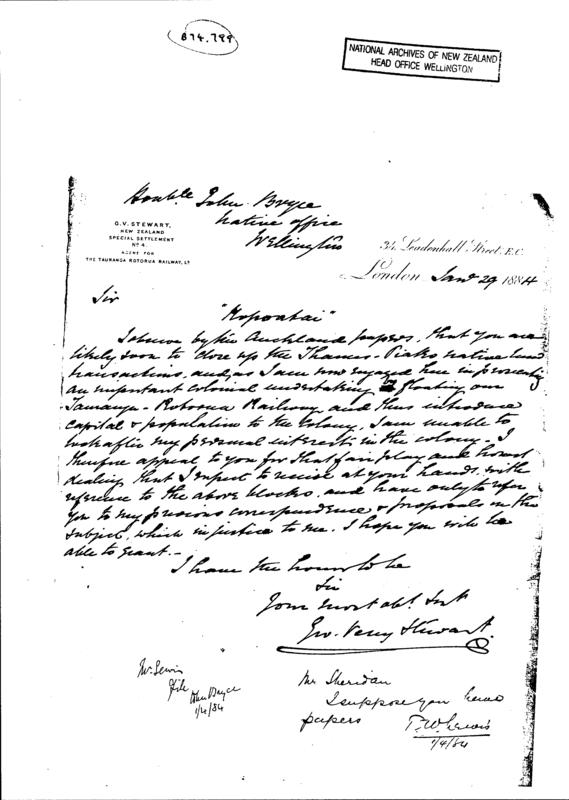 874.799
NATIONAL ARCHIVES OF NEW ZEALAND
HEAD OFFICE WELLINGTON
Honble John Bryce
Native Office
Wellington
G.V. STEWART,
NEW ZEALAND
SPECIAL SETTLEMENT
No 4.
AGENT FOR
THE TAURANGA ROTORUA RAILWAY, LD
34, Leadenhall Street, E.C.
London Jany 29 1884
Sir
"Kopoatai"
I observe by the Auckland papers, that you are
likely soon to close up the Thames-Piako native land
transactions, and as I am now engaged here in promoting
an important Colonial undertaking floating our
Tauranga-Rotorua Railway and thus introduce
capital & population to the Colony, I am unable to
look after my personal interests in the colony. I
therefore appeal to you for that fair play and honest
dealing that I expect to receive at your hands, with
reference to the above blocks, and have only to refer
you to my previous correspondence & proposals on the
subject, which in justice to me, I hope you will be
able to grant.-
I have the honor to be
Sir
Your most obt. Svt
Geo. Vesey Stewart.
Mr. Lewis
file
John Bryce
1/4/84
Mr Sheridan
I suppose you have
papers
T.W. Lewis
1/4/84